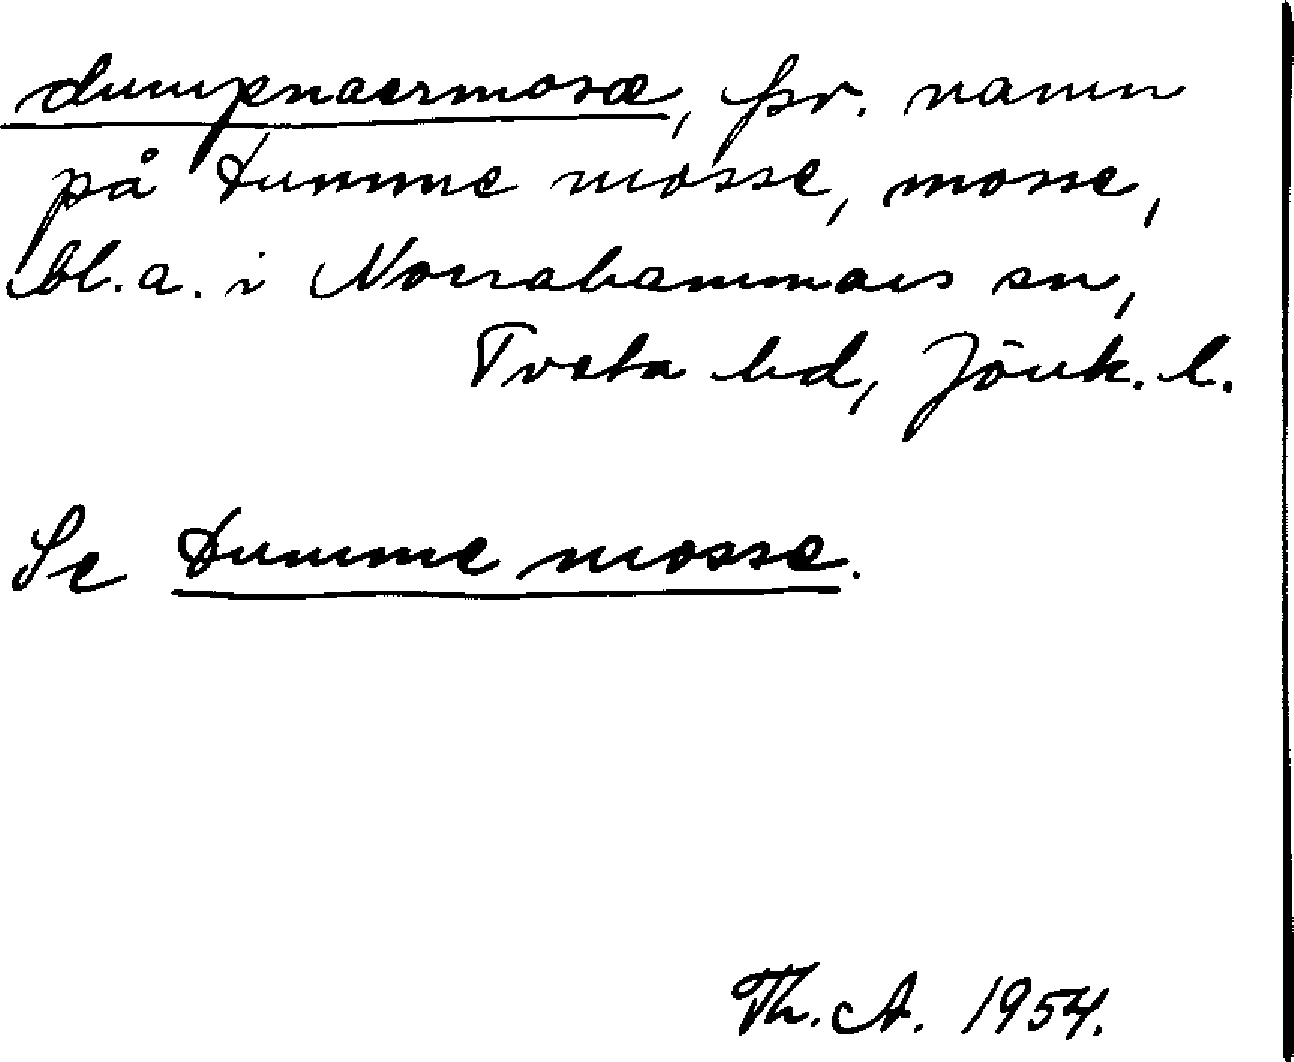 dumpnaermosæ, fsv. namn
på Dumme mosse, mosse,
bl.a. i Norrahammars sn,
Tveta hd, Jönk. l.
Se Dumme mosse.
Th. A. 1954.